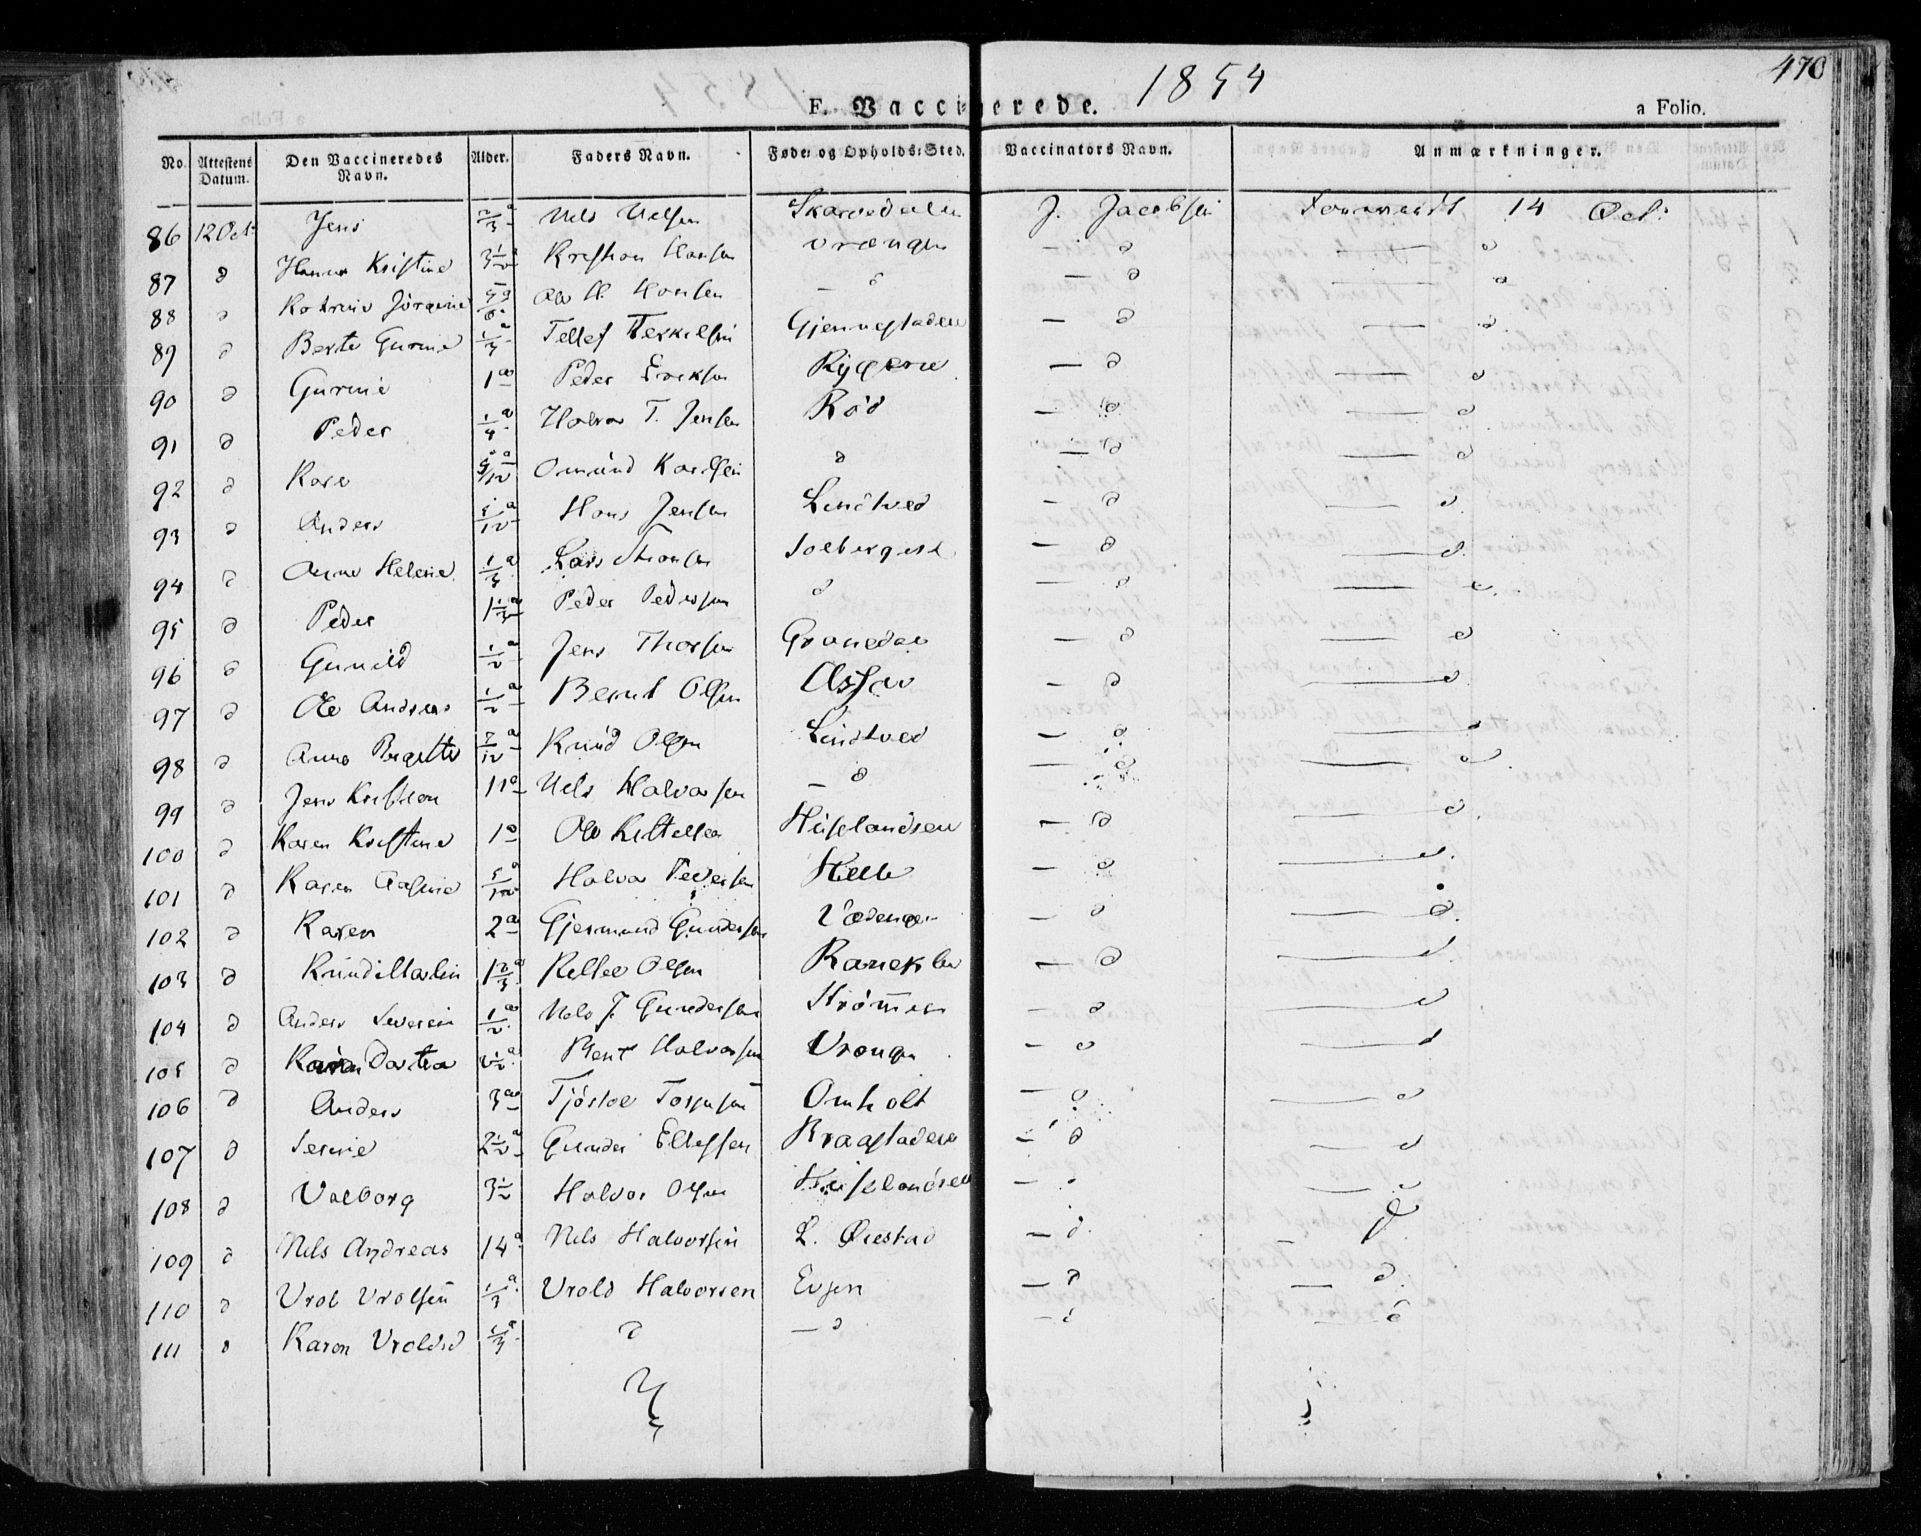 1854
470
F. Vaccinerede.
a Folio.
No. Attestens Datum. Den Vaccineredes Navn. Alder. Faders Navn. Føde- og Opholds-Sted. Vaccinators Navn. Anmærkninger.
86 12 Oct. Jens 2/3 a Nels Nelsen Skarvedalen J. Jacobsen 14 Oct:
87 d Hanna Kristine 3 1/2 a Kristian Hansen Vrængen — d — d
88 d Katrine Jörgine Ole H. Hansen — d — d — d
89 d Berte Gurine 1/3 a Tellef Terkelsen Gjennestaden — d — d
90 d Gurine 1 a Peder Erecksen Rygene — d — d
91 d Peder 1/4 a Halvor T. Jensen Röd — d — d
92 d Kare 5/12 a Omund Karlsen d — d — d
93 d Anders 5/12 a Hans Jensen Lindtved — d — d
94 d Anne Helene 1/3 a Lars Thorsen Solberget — d — d
95 d Peder 1 1/3 a Peder Pedersen d — d — d
96 d Gunild 1/2 a Jens Thorsen Granedal — d — d
97 d Ole Andreas 1/2 a Bernt Olsen — d — d
98 d Anne Birgitte 7/12 a Knud Olsen Lindtved — d — d
99 d Jens Kristian 11 a Nels Halvorsen — d — d — d
100 d Karen Kristine 1 a Ole Kittelsen Huslandsen — d — d
101 d Karen Aasine 5/12 a Halvor Pedersen Helle — d — d
102 d Karen 2 a Gjermund Gundersen — d — d
103 d 1 2/3 a Kittel Olsen — d — d
104 d Anders Severin 1/2 a Nels J. Gundersen Strömmen — d — d
105 d Karen Dortea Bent Halvorsen Vrængen — d — d
106 d Anders 3 a Tjöstol Torjusen Omholt — d — d
107 d Serine 2 1/2 a Gunder Ellefsen Braastaden — d — d
108 d Valborg 3 1/2 Halvor Olsen Huslandsen — d — d
109 d Nils Andreas 14 a Nils Halvorsen L. Øiestad — d — d
110 d Vrol Vrolsen 1/3 a Vrold Halvorsen Evjen — d — d
111 d Karen Vroldsd 1/3 a d — d — d — d